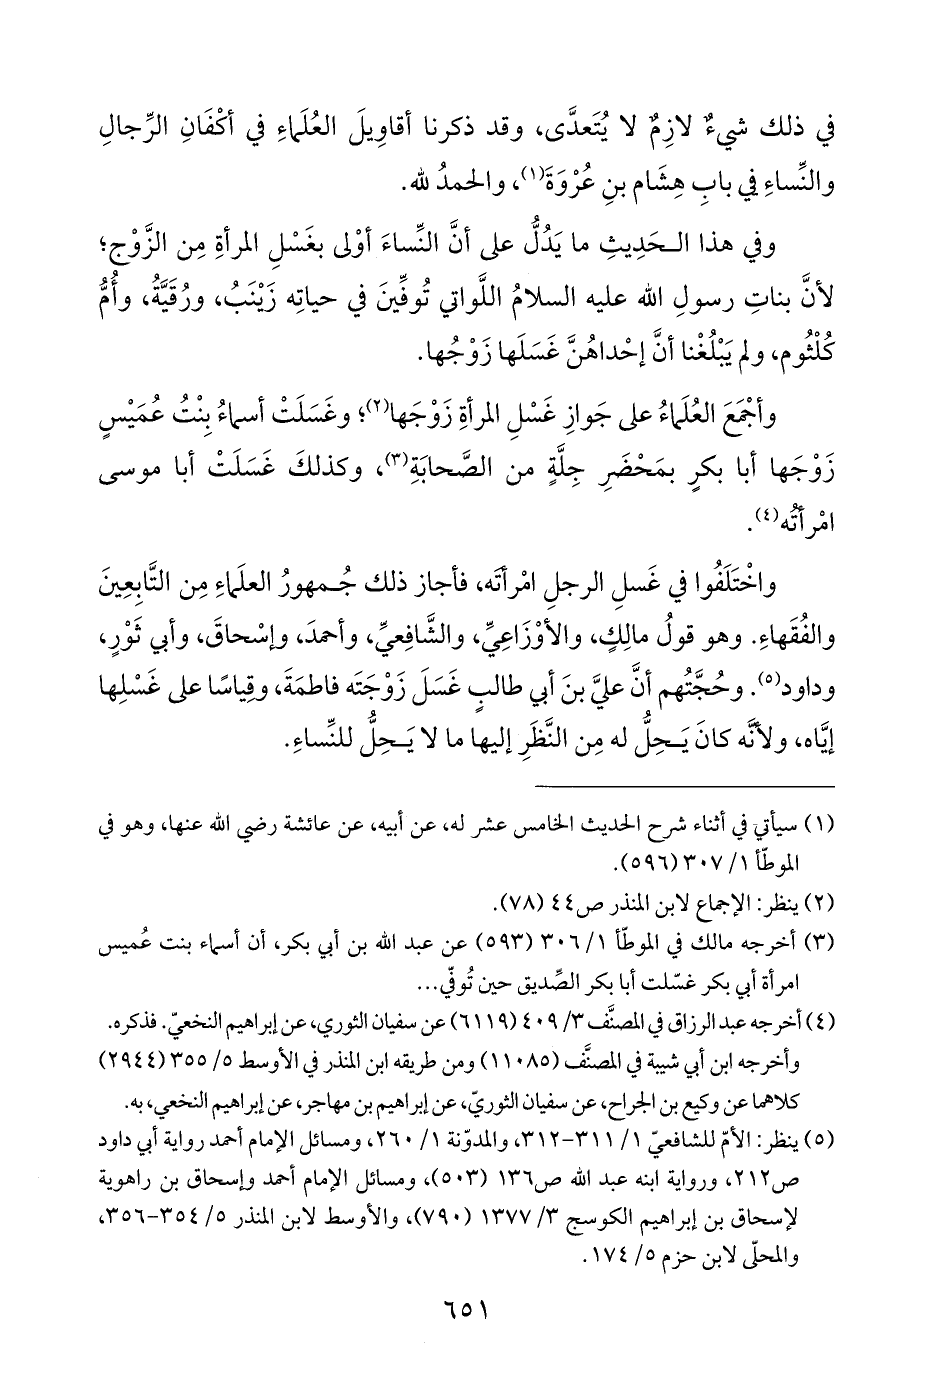 في ذلك شيءٌ لازِمٌ لا يُتَعدَّى، وقد ذكرنا أقاويلَ العُلَماءِ في أكْفَانِ الرِّجالِ
والنِّساءِ في بابِ هِشَام بنِ عُرْوَةَ(١)، والحمدُ لله.
وفي هذا الـحَديثِ ما يَدُلُّ على أنَّ النِّساءَ أوْلى بغَسْلِ المرأةِ مِن الزَّوْجِ؛
لأنَّ بناتِ رسولِ الله عليه السلامُ اللَّواتي تُوفِّينَ في حياتِه زَيْنَبُ، ورُقَيَّةُ، وأُمُّ
كُلْثُوم، ولم يَبْلُغْنا أنَّ إحْداهُنَّ غَسَلَها زَوْجُها.
وأجْمَعَ العُلَماءُ على جَوازِ غَسْلِ المرأةِ زَوْجَها(٢)؛ وغَسَلَتْ أسماءُ بِنْتُ عُمَيْسٍ
زَوْجَها أبا بكرٍ بمَحْضَرِ جِلَّةٍ من الصَّحابَةِ(٣)، وكذلكَ غَسَلَتْ أبا موسى
امْرأتُه(٤).
واخْتَلَفُوا في غَسلِ الرجلِ امْرأتَه، فأجاز ذلك جُـمهورُ العلَماءِ مِن التَّابِعِينَ
والفُقَهاءِ. وهو قولُ مالكٍ، والأوْزَاعِيِّ، والشَّافعيِّ، وأحمدَ، وإسْحاقَ، وأبي ثَوْرٍ،
وداود(٥). وحُجَّتُهم أنَّ عليَّ بنَ أبي طالبٍ غَسَلَ زَوْجَتَه فاطمَةَ، وقِياسًا على غَسْلِها
إيَّاه، ولأنَّه كانَ يَـحِلُّ له مِن النَّظَرِ إليها ما لا يَـحِلُّ للنِّساءِ.
(١) سيأتي في أثناء شرح الحديث الخامس عشر له، عن أبيه، عن عائشة رضي الله عنها، وهو في
الموطّأ ١/ ٣٠٧ (٥٩٦).
(٢) ينظر: الإجماع لابن المنذر ص٤٤ (٧٨).
(٣) أخرجه مالك في الموطّأ ١/ ٣٠٦ (٥٩٣) عن عبد الله بن أبي بكر، أن أسماء بنت عُميس
امرأة أبي بكر غسّلت أبا بكر الصِّديق حين تُوفّي...
(٤) أخرجه عبد الرزاق في المصنَّف ٣/ ٤٠٩ (٦١١٩) عن سفيان الثوري، عن إبراهيم النخعيّ. فذكره.
وأخرجه ابن أبي شيبة في المصنَّف (١١٠٨٥) ومن طريقه ابن المنذر في الأوسط ٥/ ٣٥٥ (٢٩٤٤)
كلاهما عن وكيع بن الجراح، عن سفيان الثوريّ، عن إبراهيم بن مهاجر، عن إبراهيم النخعي، به.
(٥) ينظر: الأمّ للشافعيّ ١/ ٣١١-٣١٢، والمدوّنة ١/ ٢٦٠، ومسائل الإمام أحمد رواية أبي داود
ص٢١٢، ورواية ابنه عبد الله ص١٣٦ (٥٠٣)، ومسائل الإمام أحمد وإسحاق بن راهوية
لإسحاق بن إبراهيم الكوسج ٣/ ١٣٧٧ (٧٩٠)، والأوسط لابن المنذر ٥/ ٣٥٤-٣٥٦،
والمحلّى لابن حزم ٥/ ١٧٤.
٦٥١